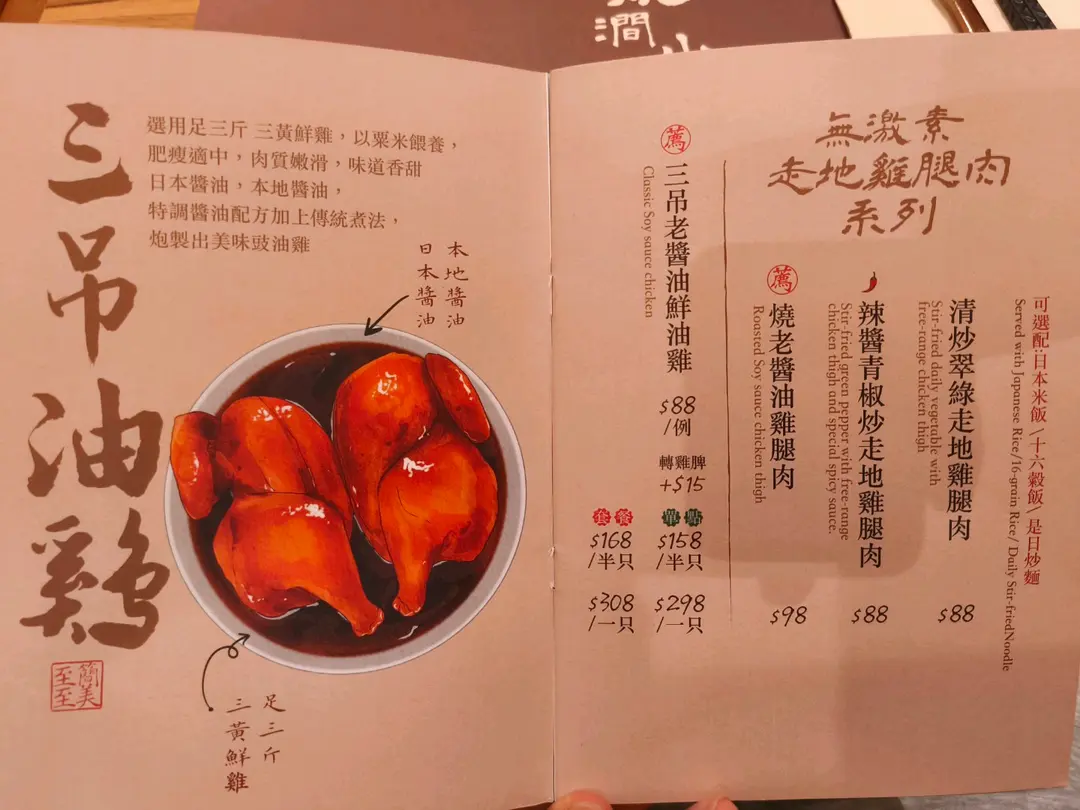 澗
三吊油鷄
簡美
至至
選用足三斤 三黃鮮雞，以粟米餵養，
肥瘦適中，肉質嫩滑，味道香甜
日本醬油，本地醬油，
特調醬油配方加上傳統煮法，
炮製出美味豉油雞
本地醬油
日本醬油
足三斤
三黃鮮雞
無激素
走地雞腿肉
系列
可選配：日本米飯 \ 十六穀飯 \ 是日炒麵
Served with Japanese Rice/16-grain Rice/ Daily Stir-friedNoodle
清炒翠綠走地雞腿肉
Stir-fried daily vegetable with
free-range chicken thigh
$88
辣醬青椒炒走地雞腿肉
Stir-fried green pepper with free-range
chicken thigh and special spicy sauce.
$88
薦
燒老醬油雞腿肉
Roasted Soy sauce chicken thigh
$98
薦
三吊老醬油鮮油雞
Classic Soy sauce chicken
$88
/例
轉雞脾
+$15
套餐 單點
$168 $158
/半只 /半只
$308 $298
/一只 /一只